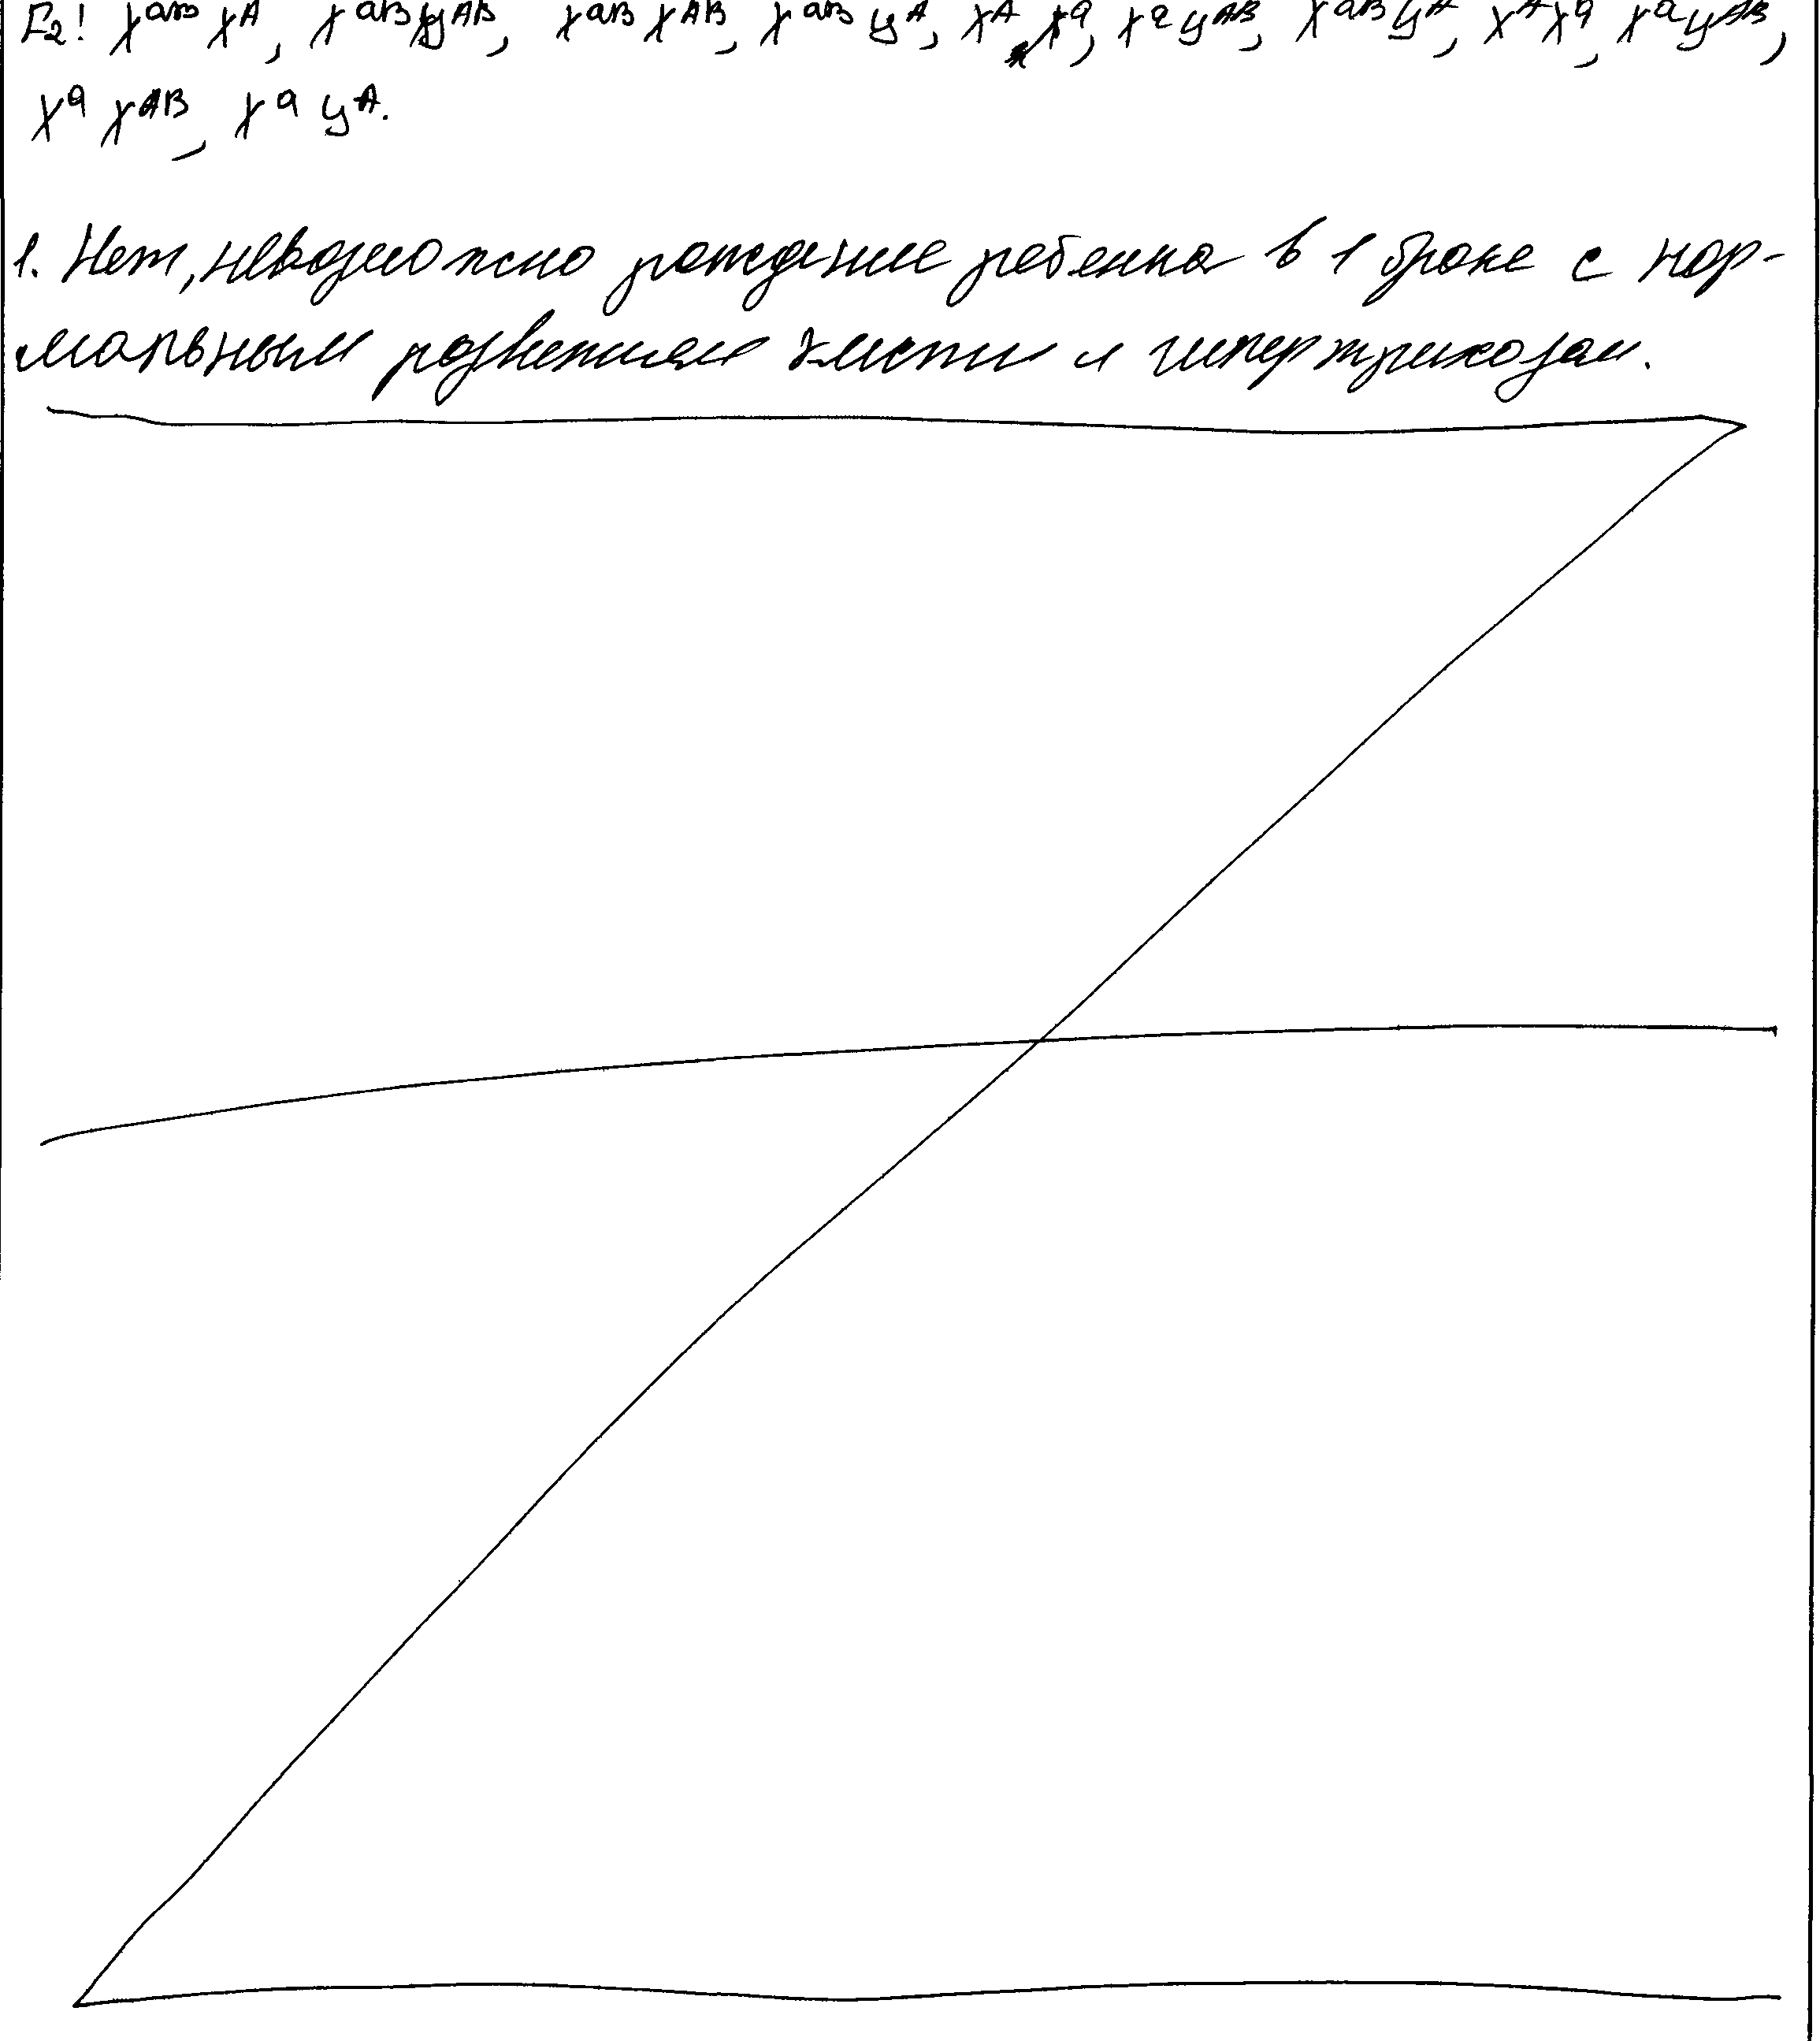 F₂! X^aB X^A, X^aB y^AB, X^aB X^AB, X^aB y^A, X^A X^a, X^a y^AB, X^aB y^A, X^A X^a, X^a y^AB,
X^a X^AB, X^a y^A.
1. Нет, невозможно рождение ребенка в 1 браке с нор-
мальным развитием эмали и гипертрихозам.